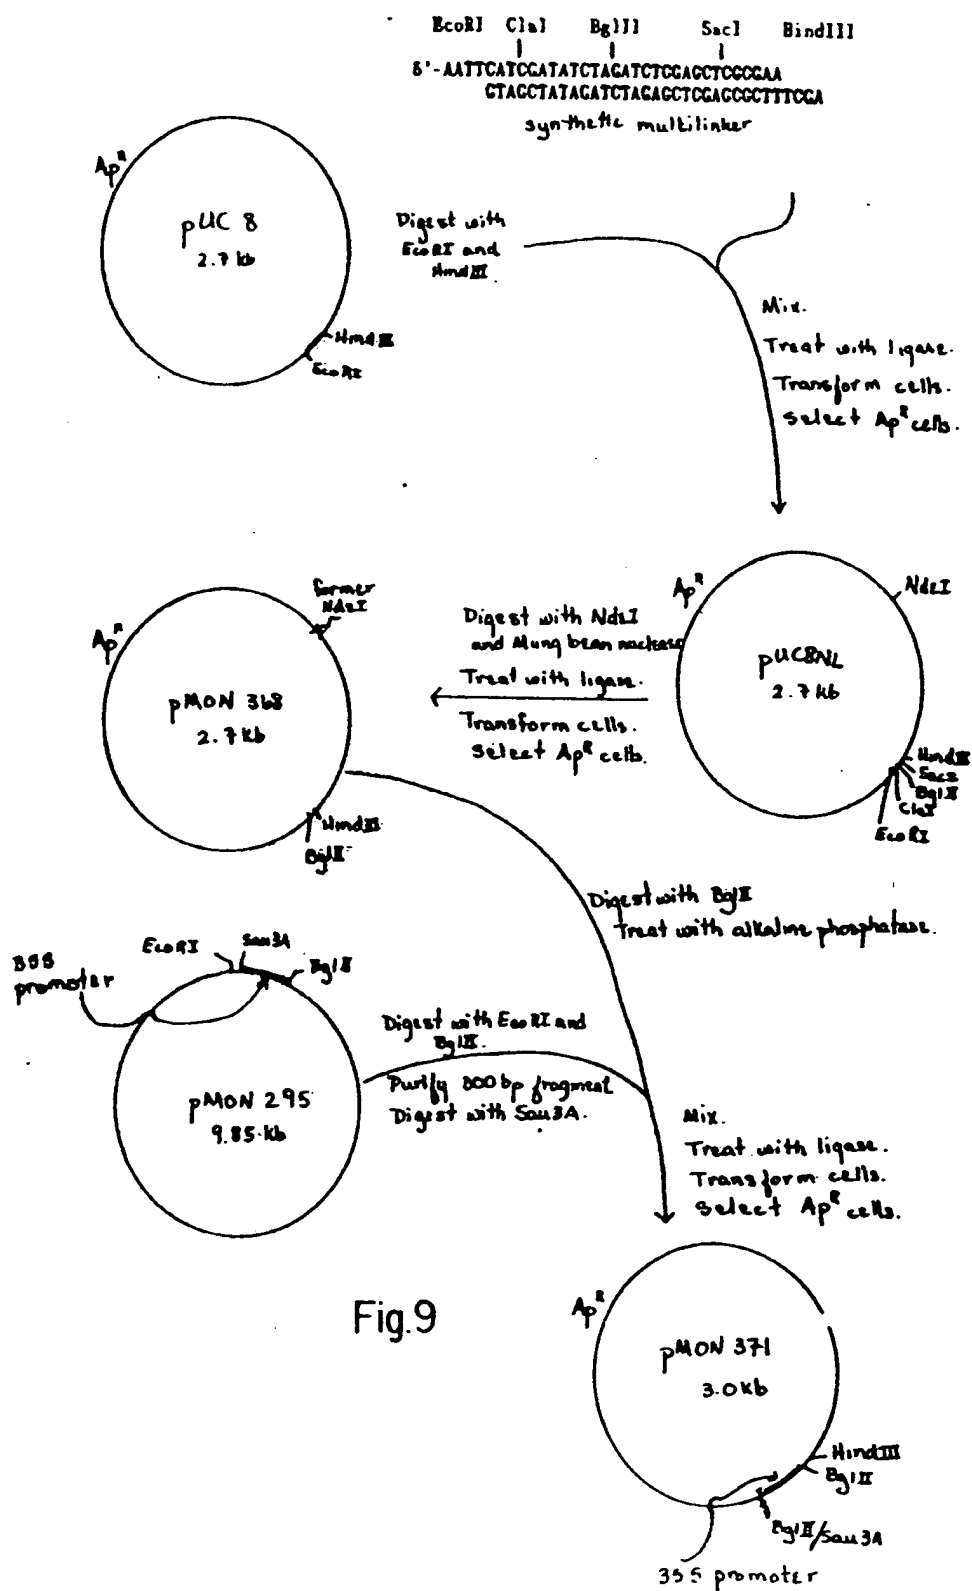 EcoRI ClaI BglII SacI BindIII
5'-AATTCATCGATATCTAGATCTCGAGCTCGCGAA
GTAGCTATAGATCTAGAGCTCGAGCGCTTTCGA
synthetic multilinker
Ap^R
pUC 8
2.7 kb
HindIII
EcoRI
Digest with
EcoRI and
HindIII.
Mix.
Treat with ligase.
Transform cells.
Select Ap^R cells.
former
NdeI
Ap^R
pMON 368
2.7 kb
HindIII
BglII
Digest with NdeI
and Mung bean nuclease
Treat with ligase.
Transform cells.
Select Ap^R cells.
Ap^R
NdeI
pUC8NL
2.7 kb
HindIII
SacI
BglII
ClaI
EcoRI
Digest with BglII
Treat with alkaline phosphatase.
35S
promoter
EcoRI
Sau3A
BglII
pMON 295
9.85 kb
Digest with EcoRI and
BglII.
Purify 300 bp fragment
Digest with Sau3A.
Mix.
Treat with ligase.
Transform cells.
Select Ap^R cells.
Fig.9
Ap^R
pMON 371
3.0 kb
HindIII
BglII
BglII/Sau3A
35S promoter